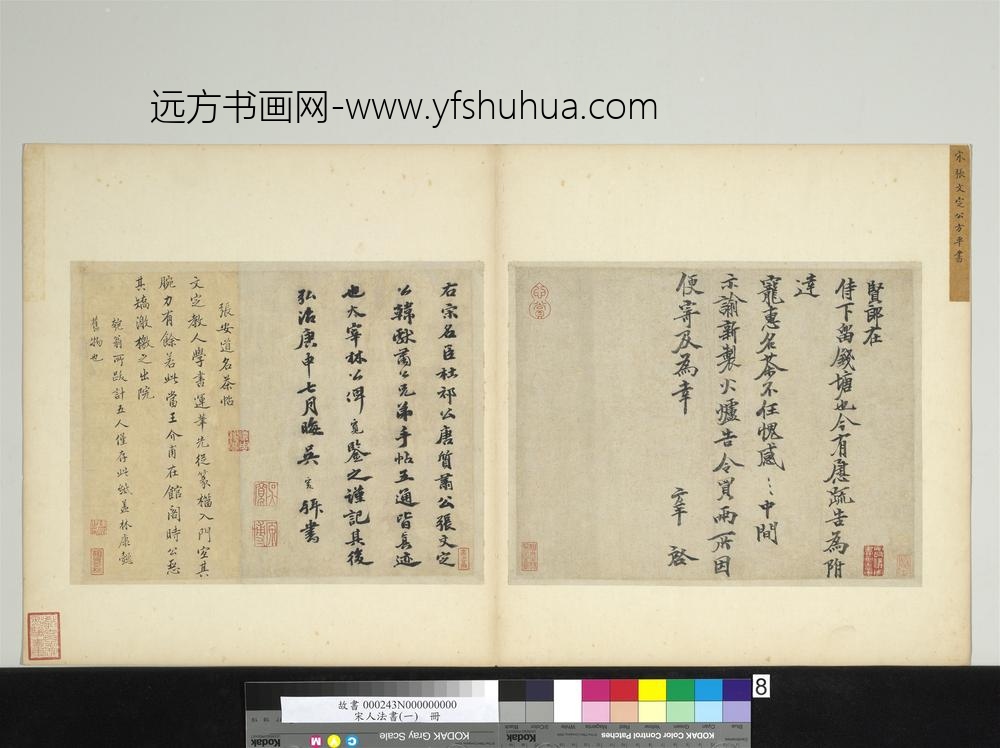 远方书画网-www.yfshuhua.com
宋張文定公方平書
賢郎在
侍下留錢塘也今有慮疏告為附
達
寵惠名茶不任愧感〻中間
示諭新製火爐告令買兩所因
便寄及為幸
啓
右宗名臣杜祁公唐質肅公張文定
公韓獻肅公兄弟手帖五通皆真迹
也太宰林公俾寬鑒之謹記其後
弘治庚申七月晦吳寬拜書
張安道名茶帖
文定教人學書運筆先從篆榴入門宜其
腕力有餘若此當王介甫在館閣時公惡
其矯激檄之出院
匏翁所跋計五人僅存此紙蓋林康懿
舊物也
故書 000243N000000000
宋人法書(一) 冊
8
Kodak
KODAK Gray Scale
C
Y
M
KODAK Color Control Patches
Blue
Cyan
Green
Yellow
Red
Magenta
White
3/Color
Black